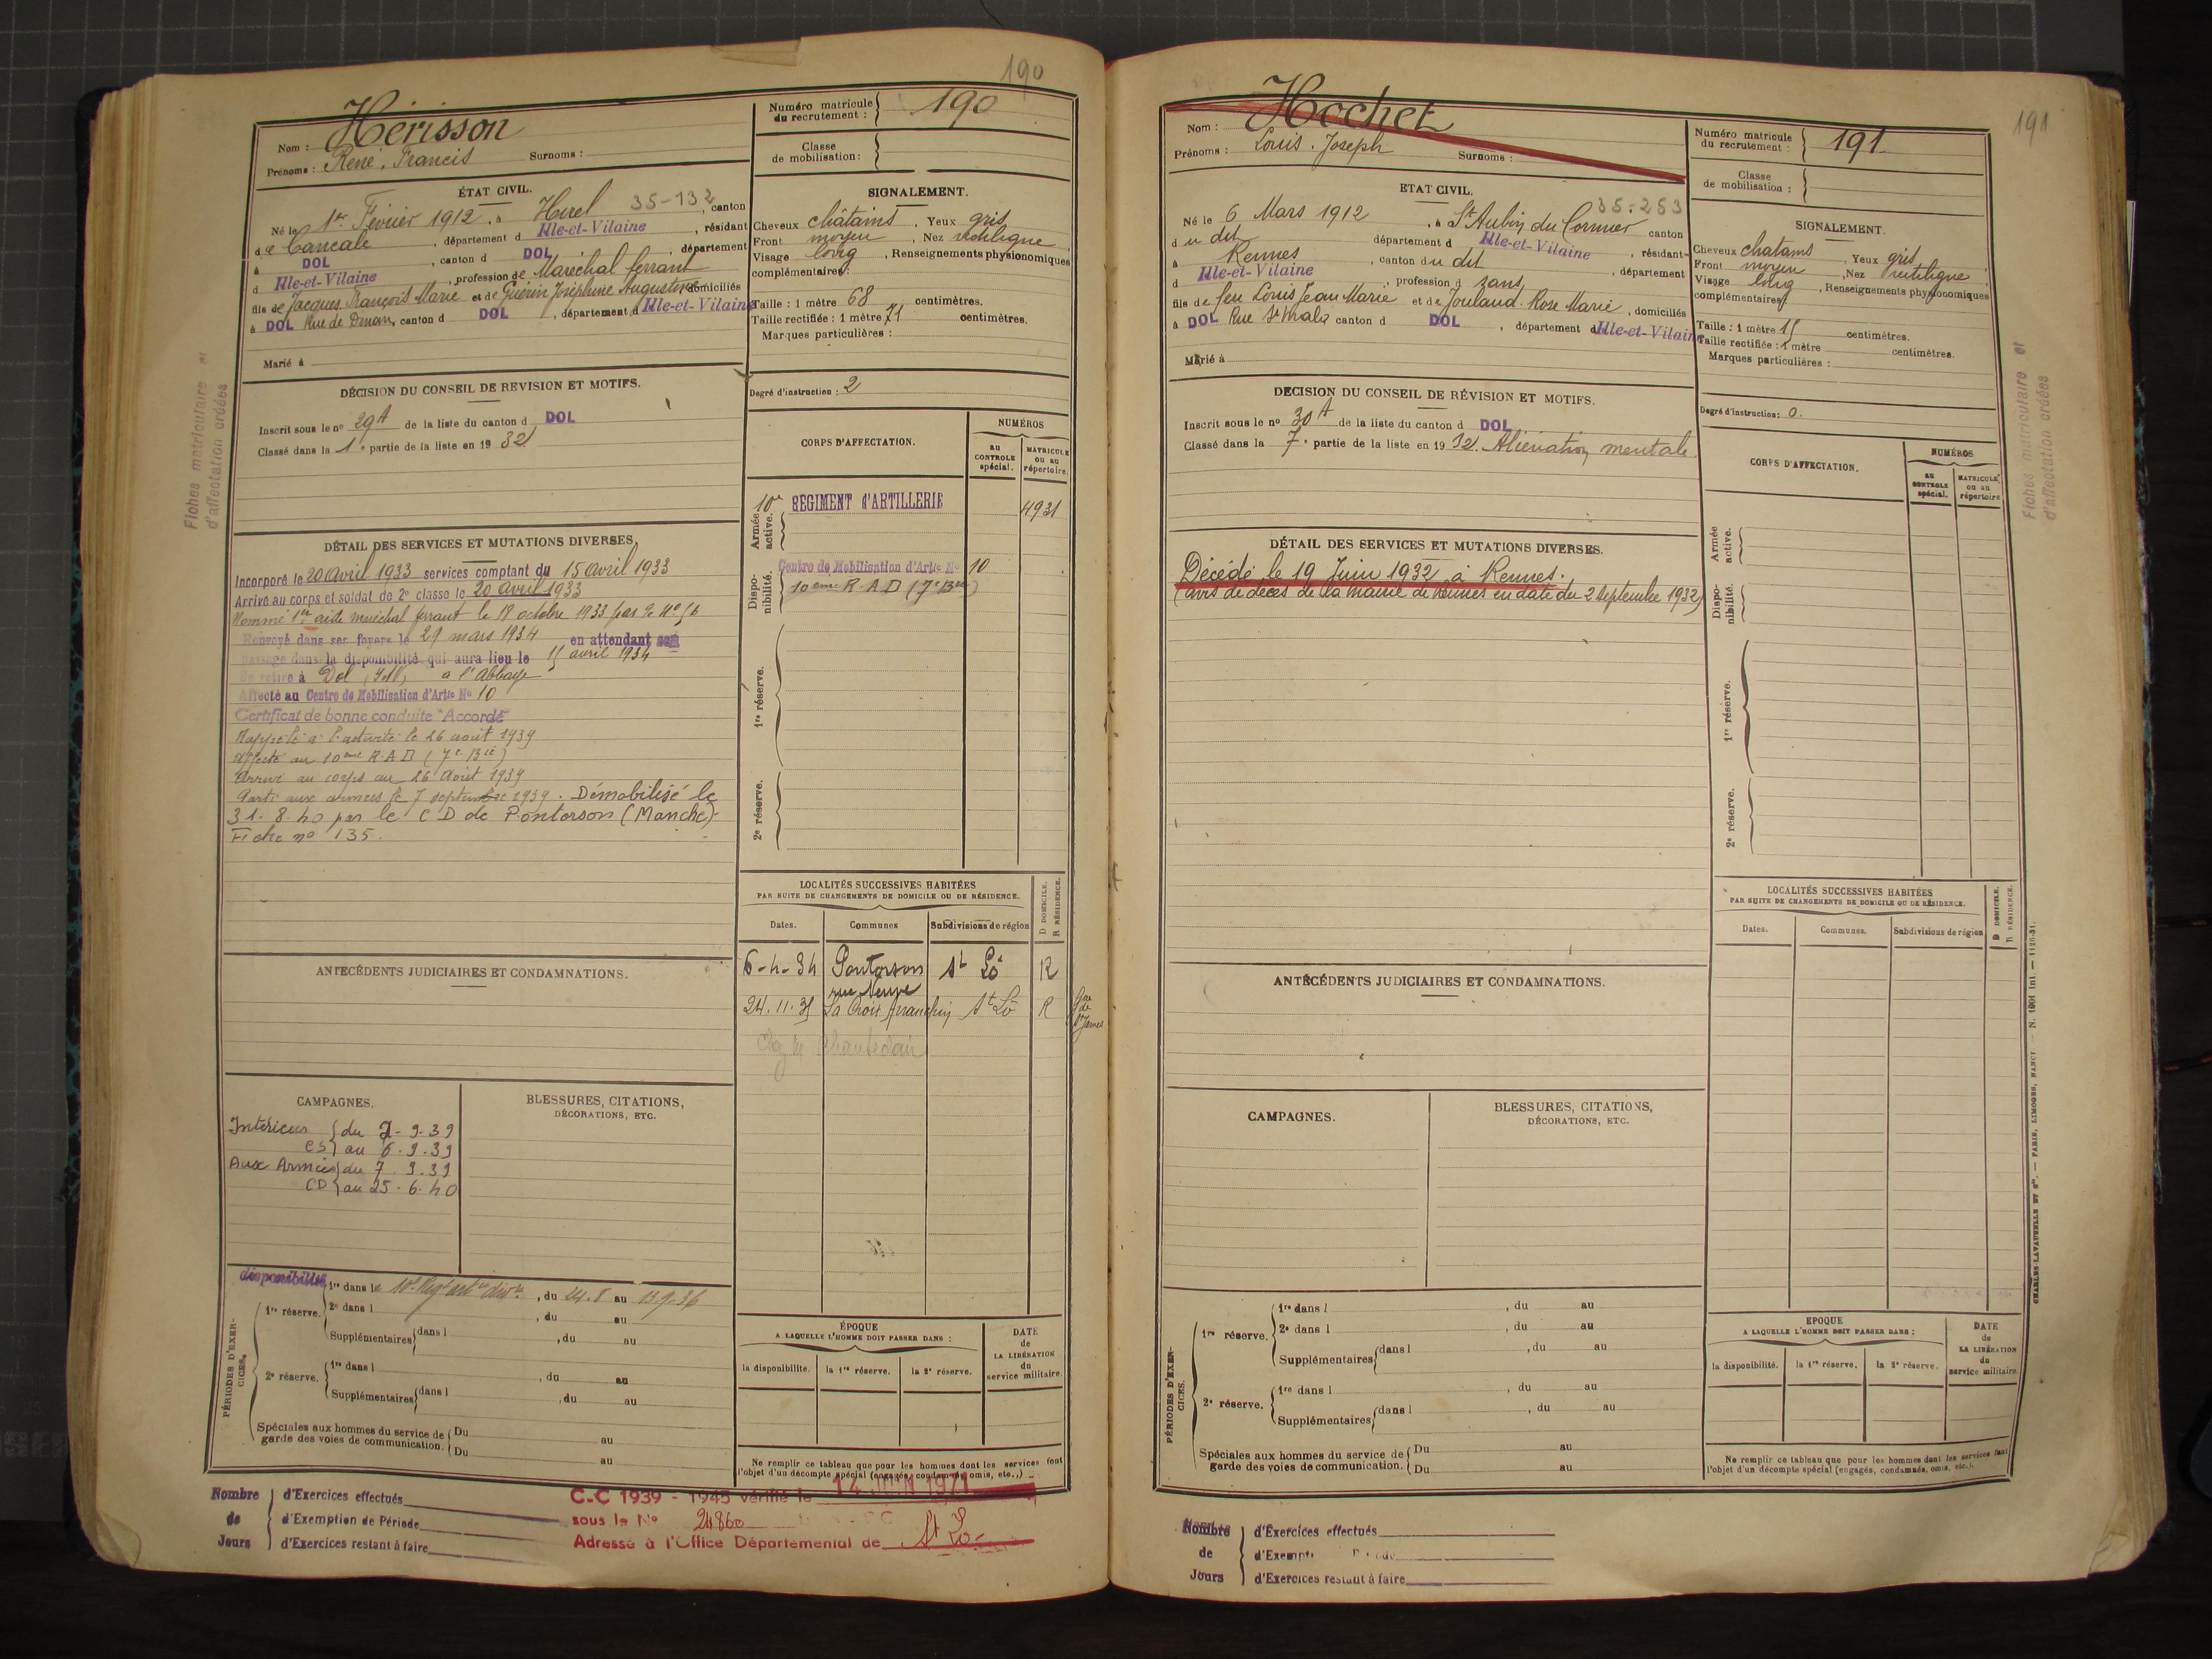 190
Nom : Hérisson
Prénoms : René, Francis Surnoms :
Numéro matricule du recrutement : 190
Classe de mobilisation :
ÉTAT CIVIL.
Né le 1er Février 1912, à Hirel 35-132, canton
de Cancale, département d Ille-et-Vilaine, résidant
à DOL, canton d DOL, département
d Ille-et-Vilaine, profession de Maréchal ferrant
fils de Jacques François Marie et de Guérin Joséphine Augustine domiciliés
à DOL Rue de Dinan, canton d DOL, département d Ille-et-Vilaine
Marié à
SIGNALEMENT.
Cheveux châtains, Yeux gris
Front moyen, Nez rectiligne
Visage long, Renseignements physionomiques
complémentaires :
Taille : 1 mètre 68 centimètres.
Taille rectifiée : 1 mètre 71 centimètres.
Marques particulières :
Degré d'instruction : 2
DÉCISION DU CONSEIL DE REVISION ET MOTIFS.
Inscrit sous le no 29A de la liste du canton d DOL
Classé dans la 1e partie de la liste en 1932
CORPS D'AFFECTATION.
NUMÉROS
au CONTROLE spécial.
MATRICULE ou au répertoire.
Armée active.
10e REGIMENT d'ARTILLERIE 4931
Disponibilité.
Centre de Mobilisation d'Artie No 10
10ème R.A.D (7e Bie)
1re réserve.
2e réserve.
DÉTAIL DES SERVICES ET MUTATIONS DIVERSES.
Incorporé le 20 avril 1933 services comptant du 15 avril 1933
Arrivé au corps et soldat de 2e classe le 20 avril 1933
Nommé 1er aide maréchal ferrant le 18 octobre 1933
Renvoyé dans ses foyers le 29 mars 1934 en attendant son
passage dans la disponibilité qui aura lieu le 15 avril 1934
Se retire à Dol (I&V) à l'Abbaye
Affecté au Centre de Mobilisation d'Artie No 10
Certificat de bonne conduite "Accordé"
Rappelé à l'activité le 26 août 1939
Affecté au 10ème R.A.D (7e Bie)
Arrivé au corps au 26 Août 1939
Parti aux armées le 7 septembre 1939. Démobilisé le
31.8.40 par le CD de Pontorson (Manche)-
Fiche no 135.
LOCALITÉS SUCCESSIVES HABITÉES
PAR SUITE DE CHANGEMENTS DE DOMICILE OU DE RÉSIDENCE.
D DOMICILE. R RÉSIDENCE.
Dates. Communes Subdivisions de région
6-4-34 Pontorson St Lô R
rue Neuve
24.11.35 La Croix Avranchin St Lô R
St James
ANTÉCÉDENTS JUDICIAIRES ET CONDAMNATIONS.
CAMPAGNES.
Intérieur du 2-9-39
CS au 6.9.39
Aux Armées du 7.9.39
CD au 25.6.40
BLESSURES, CITATIONS,
DÉCORATIONS, ETC.
PÉRIODES D'EXERCICES.
disponibilité
1re réserve.
1re dans le 10e Regt artie divre, du 24.8 au 13.9.36
2e dans l , du au
Supplémentaires dans l , du au
2e réserve.
1re dans l , du au
Supplémentaires dans l , du au
Spéciales aux hommes du service de garde des voies de communication.
Du au
Du au
ÉPOQUE
A LAQUELLE L'HOMME DOIT PASSER DANS :
la disponibilité. la 1re réserve. la 2e réserve.
DATE de LA LIBÉRATION du service militaire.
Ne remplir ce tableau que pour les hommes dont les services font
l'objet d'un décompte spécial (engagés, condamnés, omis, etc.,)
Nombre de Jours
d'Exercices effectués
d'Exemption de Période
d'Exercices restant à faire
C.C 1939 - 1945 vérifié le 14 JUIN 1971
sous le No 24860
Adressé à l'Office Départemental de St Lo-
Fiches matriculaire et
d'affectation créées
191
Nom : Hochet
Prénoms : Louis. Joseph Surnoms :
Numéro matricule du recrutement : 191
Classe de mobilisation :
ETAT CIVIL.
Né le 6 Mars 1912, à St Aubin du Cormier 35-253 canton
du dit département d Ille-et-Vilaine, résidant
à Rennes, canton du dit, département
d Ille-et-Vilaine, profession d sans
fils de feu Louis Jean Marie et de Joulaud. Rose Marie, domiciliés
à DOL Rue St Malo canton d DOL, département d Ille-et-Vilaine
Marié à
SIGNALEMENT.
Cheveux chatains. Yeux gris
Front moyen, Nez rectiligne
Visage long, Renseignements physionomiques
complémentaires
Taille : 1 mètre 15 centimètres.
Taille rectifiée : 1 mètre centimètres.
Marques particulières :
Degré d'instruction : 0.
DÉCISION DU CONSEIL DE RÉVISION ET MOTIFS.
Inscrit sous le no 30A de la liste du canton d DOL
Classé dans la 7e partie de la liste en 1932. Aliénation mentale
CORPS D'AFFECTATION.
NUMÉROS
au CONTROLE spécial.
MATRICULE ou au répertoire
Armée active.
Disponibilité.
1re réserve.
2e réserve.
DÉTAIL DES SERVICES ET MUTATIONS DIVERSES.
Décédé le 19 Juin 1932 à Rennes.
(avis de décès de la mairie de Rennes en date du 2 septembre 1932)
LOCALITÉS SUCCESSIVES HABITÉES
PAR SUITE DE CHANGEMENTS DE DOMICILE OU DE RÉSIDENCE.
D DOMICILE. R RÉSIDENCE.
Dates. Communes. Subdivisions de région
ANTÉCÉDENTS JUDICIAIRES ET CONDAMNATIONS.
CAMPAGNES.
BLESSURES, CITATIONS,
DÉCORATIONS, ETC.
PÉRIODES D'EXERCICES.
1re réserve.
1re dans l , du au
2e dans l , du au
Supplémentaires dans l , du au
2e réserve.
1re dans l , du au
Supplémentaires dans l , du au
Spéciales aux hommes du service de garde des voies de communication.
Du au
Du au
EPOQUE
A LAQUELLE L'HOMME DOIT PASSER DANS :
la disponibilité. la 1re réserve. la 2e réserve.
DATE de LA LIBÉRATION du service militaire.
Ne remplir ce tableau que pour les hommes dont les services font
l'objet d'un décompte spécial (engagés, condamnés, omis, etc.).
Nombre de Jours
d'Exercices effectués
d'Exercices restant à faire
Fiches matriculaire et
d'affectation créées